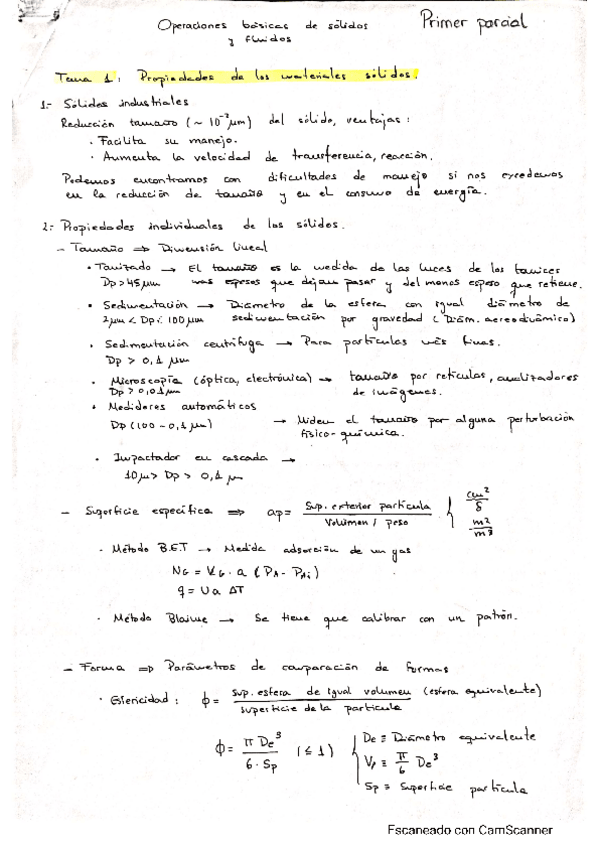 Operaciones básicas de sólidos
y fluidos
Primer parcial
Tema 1: Propiedades de los materiales sólidos.
1.- Sólidos industriales
Reducción tamaño (~ 10⁻² μm) del sólido, ventajas:
· Facilita su manejo.
· Aumenta la velocidad de transferencia, reacción.
Podemos encontrarnos con dificultades de manejo si nos excedemos
en la reducción de tamaño y en el consumo de energía.
2.- Propiedades individuales de los sólidos.
- Tamaño ⇒ Dimensión lineal
· Tamizado → El tamaño es la medida de las luces de los tamices
Dp > 45 μm mas espesos que dejan pasar y del menos espeso que retiene.
· Sedimentación → Diámetro de la esfera con igual diámetro de
2 μm < Dp < 100 μm sedimentación por gravedad (Diám. aereodinámico)
· Sedimentación centrífuga → Para partículas más finas.
Dp > 0,1 μm
· Microscopía (óptica, electrónica) → tamaño por retículos, analizadores
Dp > 0,01 μm de imágenes.
· Medidores automáticos
Dp (100 - 0,1 μm) → Miden el tamaño por alguna perturbación
físico-química.
· Impactador en cascada →
10 μ > Dp > 0,1 μm
- Superficie específica ⇒ ap = Sup. exterior partícula / Volumen / peso { cm²/g m²/m³
· Método B.E.T → Medida adsorción de un gas
N_G = K_G · a (P_A - P_Ai)
q = U a ΔT
· Método Blaine → Se tiene que calibrar con un patrón.
- Forma ⇒ Parámetros de comparación de formas
· Esfericidad: ϕ = sup. esfera de igual volumen (esfera equivalente) / superficie de la partícula
ϕ = π De³ / 6 · Sp (≤ 1) { De ≡ Diámetro equivalente
Vp ≡ π/6 De³
Sp ≡ Superficie partícula
Escaneado con CamScanner